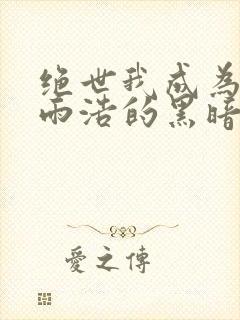 绝世我成为
雨浩的黑暗
愛之傳